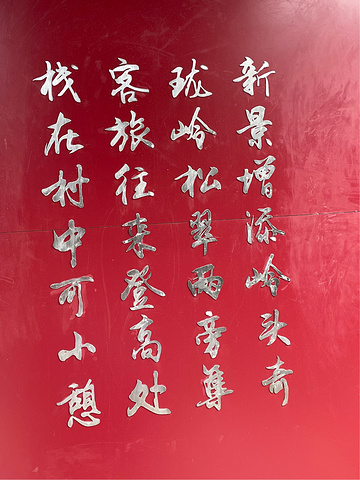 新景增添岭头奇
珑岭松翠两旁尊
客旅往来登高处
栈在村中可小憩